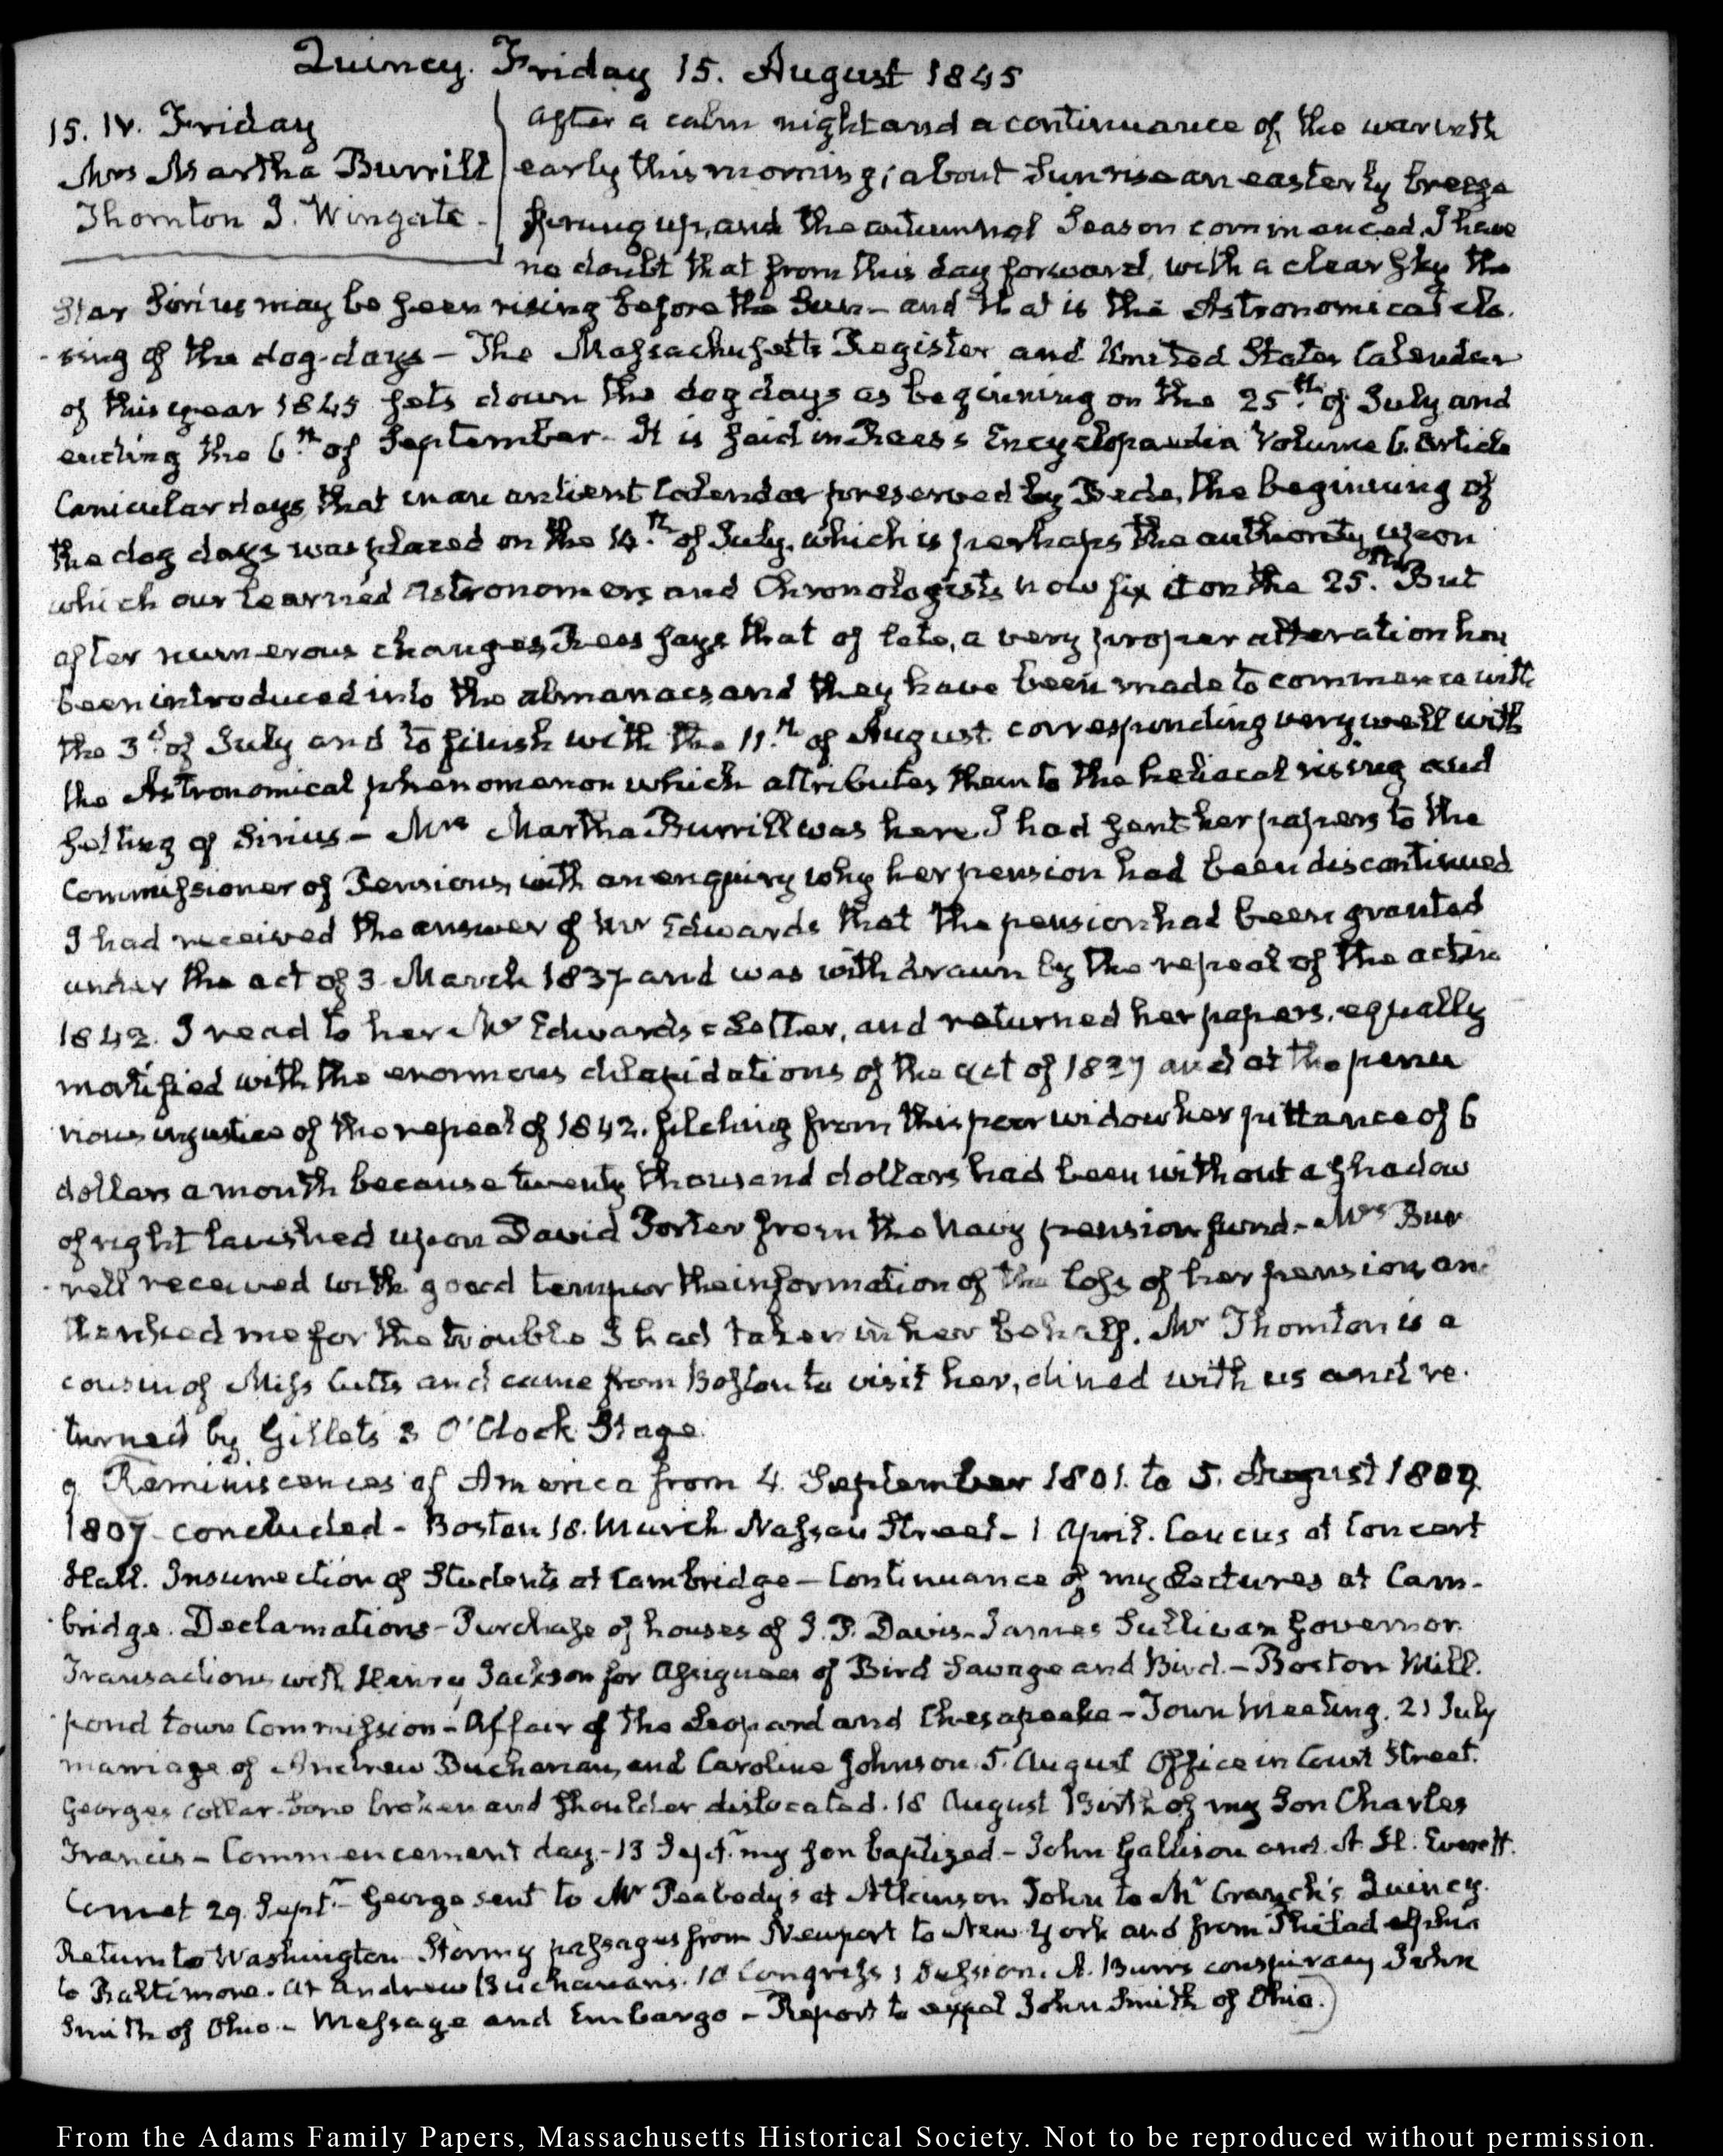 Quincy. Friday 15. August 1845
15. IV. Friday
Mrs Martha Burrill
Thornton J. Wingate.
After a calm night and a continuance of the warmth
early this morning; about Sunrise an easterly breeze
sprung up, and the autumnal Season commenced. I have
no doubt that from this day forward, with a clear sky the
Star Sirius may be seen rising before the Sun - and that is the Astronomical clo-
-sing of the dog-days - The Massachusetts Register and United States Calendar
of this year 1845 sets down the dog days as beginning on the 25.th of July and
ending the 6.th of September - It is said in Rees's Encyclopaedia Volume 6. Article
Canicular days, that in an antient Calendar preserved by Bede, the beginning of
the dog days was placed on the 14.th of July, which is perhaps the authority upon
which our learned Astronomers and Chronologists now fix it on the 25.th But
after numerous changes, Rees says that of late, a very proper alteration has
been introduced into the almanacs and they have been made to commence with
the 3.d of July and to finish with the 11.th of August corresponding very well with
the Astronomical phenomenon which attributes them to the heliacal rising and
setting of Sirius - Mrs Martha Burrill was here. I had sent her papers to the
Commissioner of Pensions, with an enquiry why her pension had been discontinued
I had received the answer of Mr Edwards that the pension had been granted
under the act of 3 March 1837 and was withdrawn by the repeal of the act in
1842. I read to her Mr Edwards's Letter, and returned her papers, equally
mortified with the enormous dilapidations of the act of 1837 and at the penu
rious injustice of the repeal of 1842. filching from this poor widow her pittance of 6
dollars a month because twenty thousand dollars had been without a shadow
of right lavished upon David Porter from the Navy pension fund. - Mrs Bur
-rell received with good temper the information of the loss of her pension, and
thanked me for the trouble I had taken in her behalf. Mr Thornton is a
cousin of Miss Cutts and came from Boston to visit her, dined with us and re-
turned by Gillets 3 O'Clock Stage.
9 Reminiscences of America from 4. September 1801. to 5. August 1809.
1807 concluded - Boston 18. March Nassau Street - 1 April. Caucus at Concert
Hall. Insurrection of Students at Cambridge - Continuance of my Lectures at Cam-
bridge. Declamations - Purchase of houses of J. P. Davis - James Sullivan Governor.
Transactions with Henry Jackson for Assignees of Bird Savage and Bird. - Boston Mill.
pond town Commission - Affair of the Leopard and Chesapeake - Town Meeting. 21 July
marriage of Andrew Buchanan, and Caroline Johnson. 5. August Office in Court Street.
Georges collar-bone broken and shoulder dislocated. 18 August Birth of my Son Charles
Francis - Commencement day. - 13 Sept.r my son baptized - John Gallison and A. H. Everett.
Comet 29. Sept.r - George sent to Mr Peabody's at Atkinson John to Mr Cranch's Quincy.
Return to Washington Stormy passages from Newport to New York and from Philadelphia
to Baltimore. at Andrew Buchanans. 10 Congress 1 Session. A. Burrs conspiracy John
Smith of Ohio. - Message and Embargo - Report to expel John Smith of Ohio.)
From the Adams Family Papers, Massachusetts Historical Society. Not to be reproduced without permission.